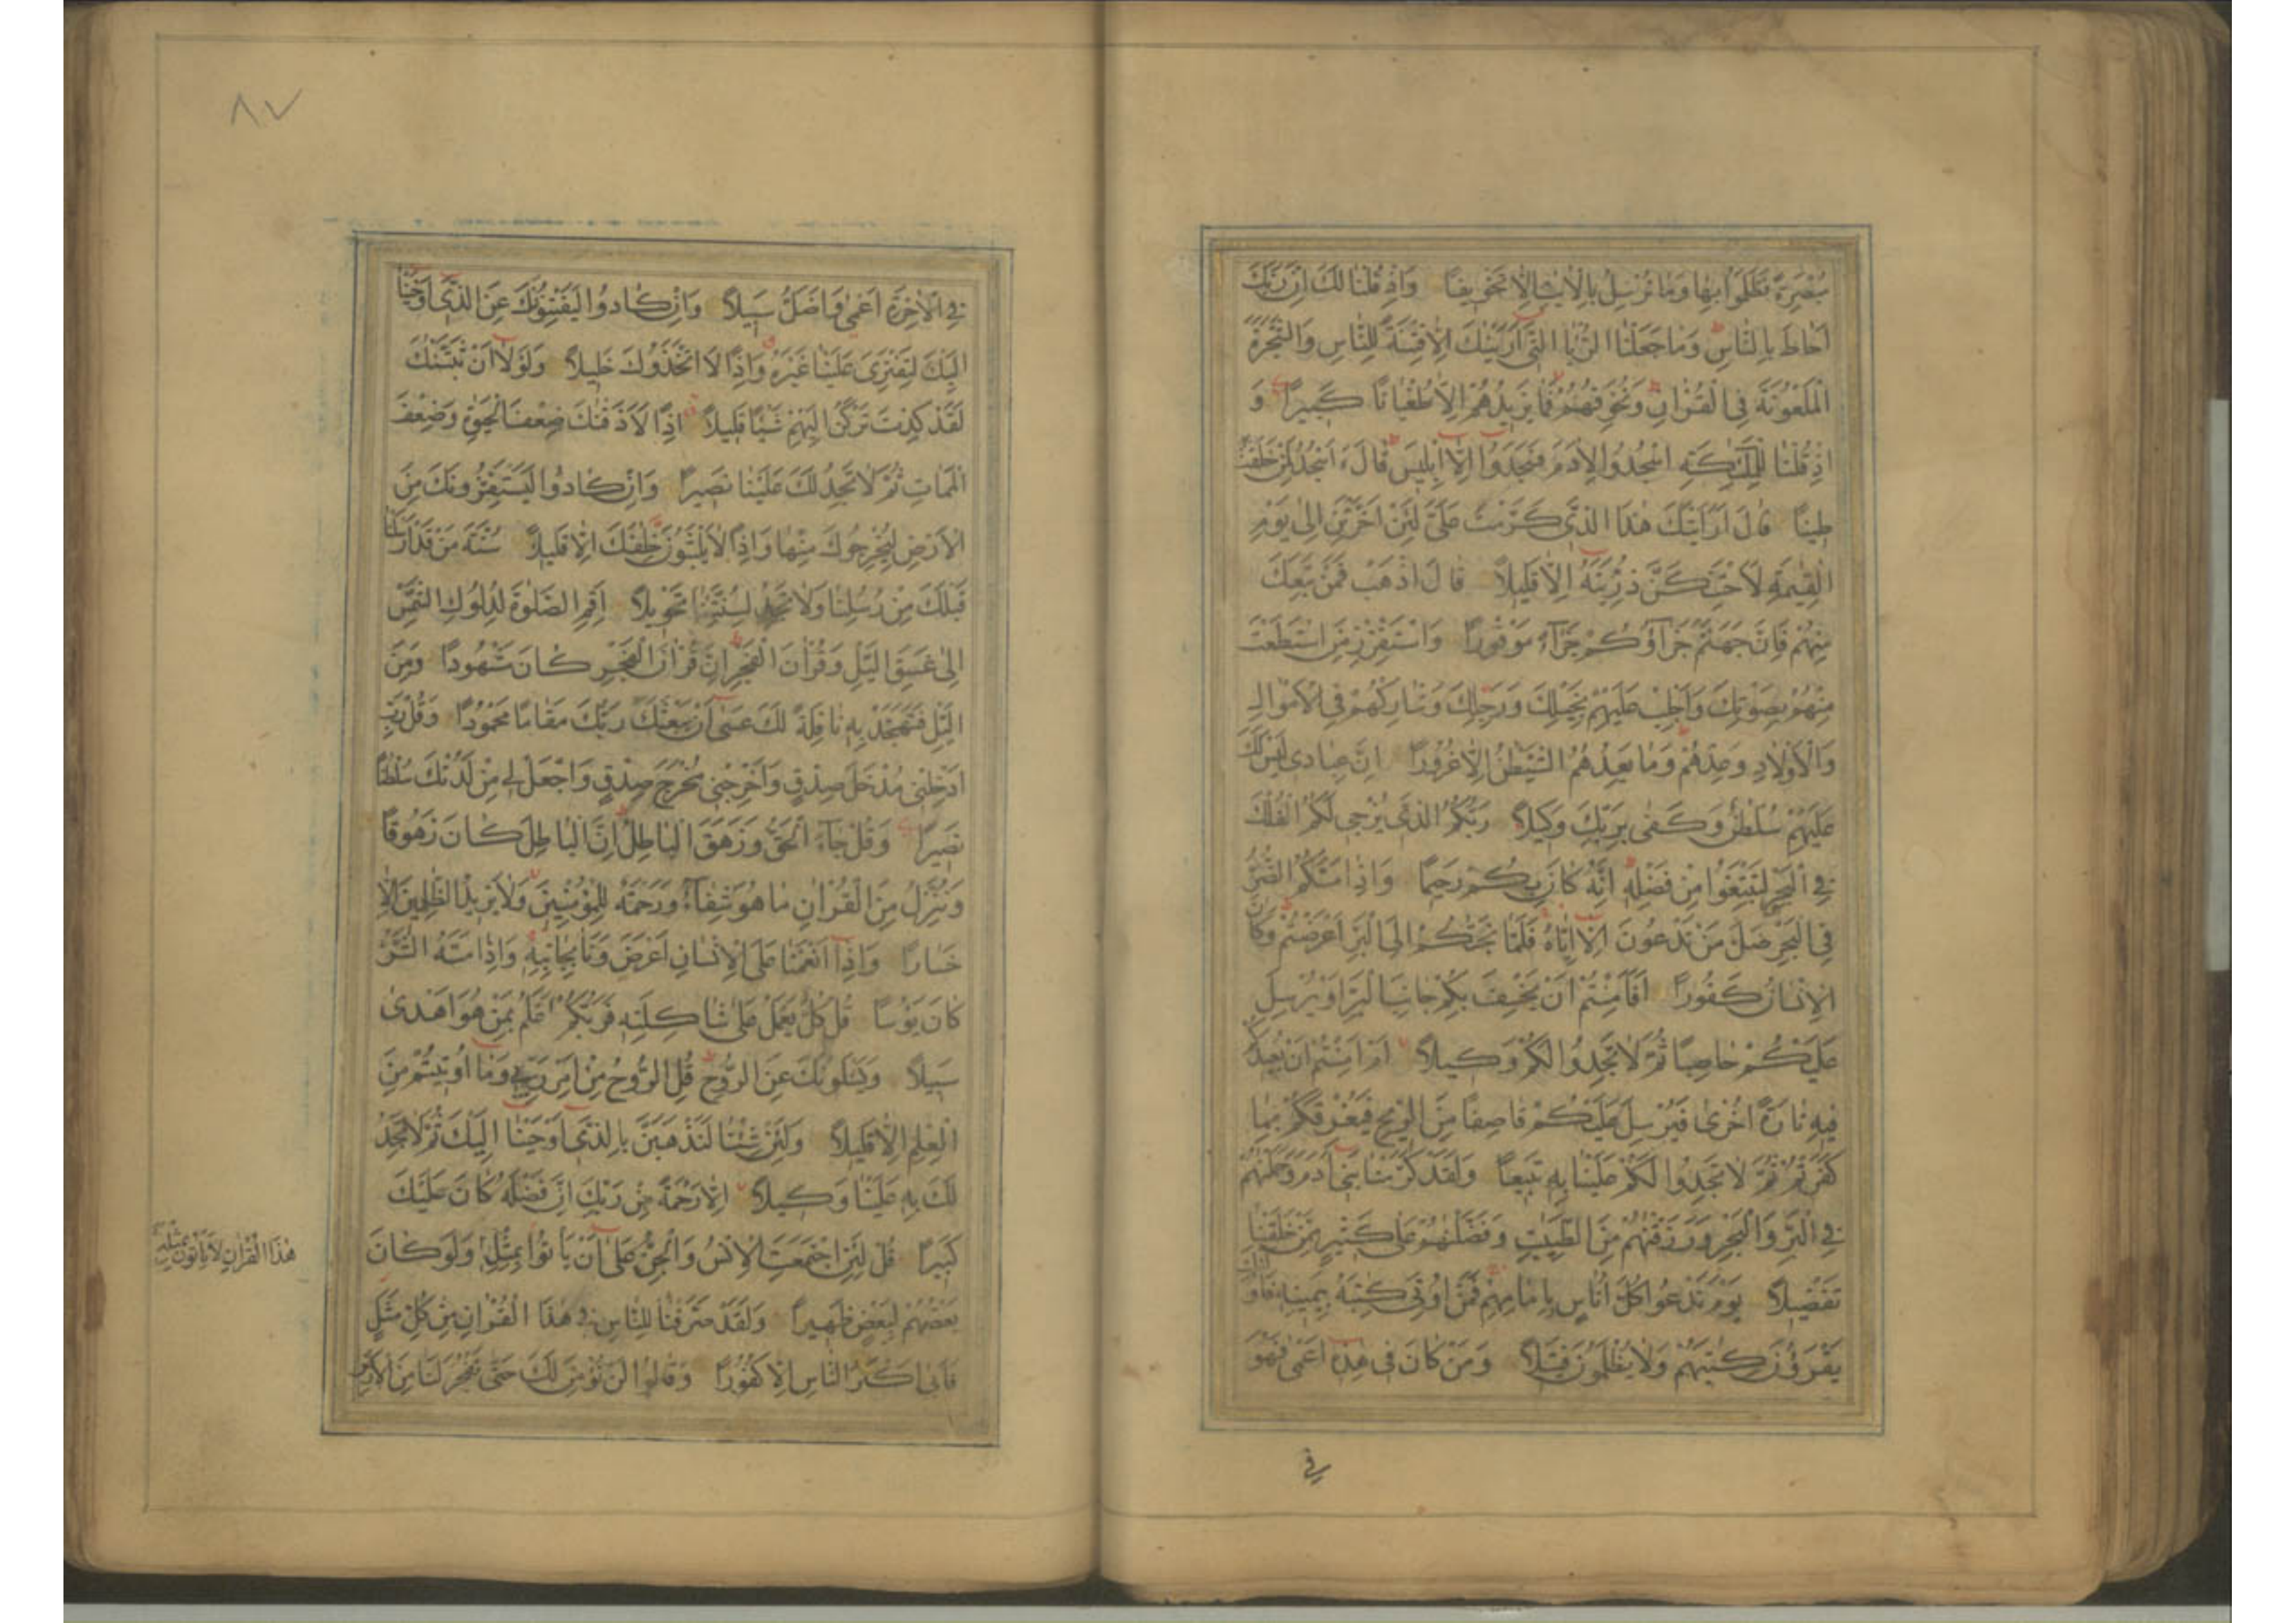 مُبْصِرَةً فَظَلَمُوا بِهَا وَمَا نُرْسِلُ بِالْاٰيٰتِ اِلَّا تَخْوِيفًا وَاِذْ قُلْنَا لَكَ اِنَّ رَبَّكَ
اَحَاطَ بِالنَّاسِ وَمَا جَعَلْنَا الرُّءْيَا الَّتِي اَرَيْنٰكَ اِلَّا فِتْنَةً لِلنَّاسِ وَالشَّجَرَةَ
الْمَلْعُونَةَ فِي الْقُرْاٰنِ وَنُخَوِّفُهُمْ فَمَا يَزِيدُهُمْ اِلَّا طُغْيَانًا كَبِيرًا وَ
اِذْ قُلْنَا لِلْمَلٰٓئِكَةِ اسْجُدُوا لِاٰدَمَ فَسَجَدُوا اِلَّا اِبْلِيسَ قَالَ ءَاَسْجُدُ لِمَنْ خَلَقْتَ
طِينًا قَالَ اَرَاَيْتَكَ هٰذَا الَّذِي كَرَّمْتَ عَلَيَّ لَئِنْ اَخَّرْتَنِ اِلٰى يَوْمِ
الْقِيٰمَةِ لَاَحْتَنِكَنَّ ذُرِّيَّتَهُ اِلَّا قَلِيلًا قَالَ اذْهَبْ فَمَنْ تَبِعَكَ
مِنْهُمْ فَاِنَّ جَهَنَّمَ جَزَآؤُكُمْ جَزَآءً مَوْفُورًا وَاسْتَفْزِزْ مَنِ اسْتَطَعْتَ
مِنْهُمْ بِصَوْتِكَ وَاَجْلِبْ عَلَيْهِمْ بِخَيْلِكَ وَرَجِلِكَ وَشَارِكْهُمْ فِي الْاَمْوَالِ
وَالْاَوْلَادِ وَعِدْهُمْ وَمَا يَعِدُهُمُ الشَّيْطٰنُ اِلَّا غُرُورًا اِنَّ عِبَادِي لَيْسَ لَكَ
عَلَيْهِمْ سُلْطٰنٌ وَكَفٰى بِرَبِّكَ وَكِيلًا رَبُّكُمُ الَّذِي يُزْجِي لَكُمُ الْفُلْكَ
فِي الْبَحْرِ لِتَبْتَغُوا مِنْ فَضْلِهِ اِنَّهُ كَانَ بِكُمْ رَحِيمًا وَاِذَا مَسَّكُمُ الضُّرُّ
فِي الْبَحْرِ ضَلَّ مَنْ تَدْعُونَ اِلَّا اِيَّاهُ فَلَمَّا نَجّٰىكُمْ اِلَى الْبَرِّ اَعْرَضْتُمْ وَكَانَ
الْاِنْسَانُ كَفُورًا اَفَاَمِنْتُمْ اَنْ يَخْسِفَ بِكُمْ جَانِبَ الْبَرِّ اَوْ يُرْسِلَ
عَلَيْكُمْ حَاصِبًا ثُمَّ لَا تَجِدُوا لَكُمْ وَكِيلًا اَمْ اَمِنْتُمْ اَنْ يُعِيدَكُمْ
فِيهِ تَارَةً اُخْرٰى فَيُرْسِلَ عَلَيْكُمْ قَاصِفًا مِنَ الرِّيحِ فَيُغْرِقَكُمْ بِمَا
كَفَرْتُمْ ثُمَّ لَا تَجِدُوا لَكُمْ عَلَيْنَا بِهِ تَبِيعًا وَلَقَدْ كَرَّمْنَا بَنِي اٰدَمَ وَحَمَلْنٰهُمْ
فِي الْبَرِّ وَالْبَحْرِ وَرَزَقْنٰهُمْ مِنَ الطَّيِّبٰتِ وَفَضَّلْنٰهُمْ عَلٰى كَثِيرٍ مِمَّنْ خَلَقْنَا
تَفْضِيلًا يَوْمَ نَدْعُوا كُلَّ اُنَاسٍ بِاِمَامِهِمْ فَمَنْ اُوتِيَ كِتٰبَهُ بِيَمِينِهِ فَاُولٰٓئِكَ
يَقْرَؤُنَ كِتٰبَهُمْ وَلَا يُظْلَمُونَ فَتِيلًا وَمَنْ كَانَ فِي هٰذِهِ اَعْمٰى فَهُوَ
فِي
٨٧
فِي الْاٰخِرَةِ اَعْمٰى وَاَضَلُّ سَبِيلًا وَاِنْ كَادُوا لَيَفْتِنُونَكَ عَنِ الَّذِي اَوْحَيْنَا
اِلَيْكَ لِتَفْتَرِيَ عَلَيْنَا غَيْرَهُ وَاِذًا لَاتَّخَذُوكَ خَلِيلًا وَلَوْلَا اَنْ ثَبَّتْنٰكَ
لَقَدْ كِدْتَ تَرْكَنُ اِلَيْهِمْ شَيْئًا قَلِيلًا اِذًا لَاَذَقْنٰكَ ضِعْفَ الْحَيٰوةِ وَضِعْفَ
الْمَمَاتِ ثُمَّ لَا تَجِدُ لَكَ عَلَيْنَا نَصِيرًا وَاِنْ كَادُوا لَيَسْتَفِزُّونَكَ مِنَ
الْاَرْضِ لِيُخْرِجُوكَ مِنْهَا وَاِذًا لَا يَلْبَثُونَ خِلٰفَكَ اِلَّا قَلِيلًا سُنَّةَ مَنْ قَدْ اَرْسَلْنَا
قَبْلَكَ مِنْ رُسُلِنَا وَلَا تَجِدُ لِسُنَّتِنَا تَحْوِيلًا اَقِمِ الصَّلٰوةَ لِدُلُوكِ الشَّمْسِ
اِلٰى غَسَقِ الَّيْلِ وَقُرْاٰنَ الْفَجْرِ اِنَّ قُرْاٰنَ الْفَجْرِ كَانَ مَشْهُودًا وَمِنَ
الَّيْلِ فَتَهَجَّدْ بِهِ نَافِلَةً لَكَ عَسٰى اَنْ يَبْعَثَكَ رَبُّكَ مَقَامًا مَحْمُودًا وَقُلْ رَبِّ
اَدْخِلْنِي مُدْخَلَ صِدْقٍ وَاَخْرِجْنِي مُخْرَجَ صِدْقٍ وَاجْعَلْ لِي مِنْ لَدُنْكَ سُلْطٰنًا
نَصِيرًا وَقُلْ جَآءَ الْحَقُّ وَزَهَقَ الْبَاطِلُ اِنَّ الْبَاطِلَ كَانَ زَهُوقًا
وَنُنَزِّلُ مِنَ الْقُرْاٰنِ مَا هُوَ شِفَآءٌ وَرَحْمَةٌ لِلْمُؤْمِنِينَ وَلَا يَزِيدُ الظّٰلِمِينَ اِلَّا
خَسَارًا وَاِذَا اَنْعَمْنَا عَلَى الْاِنْسَانِ اَعْرَضَ وَنَاٰ بِجَانِبِهِ وَاِذَا مَسَّهُ الشَّرُّ
كَانَ يَؤُسًا قُلْ كُلٌّ يَعْمَلُ عَلٰى شَاكِلَتِهِ فَرَبُّكُمْ اَعْلَمُ بِمَنْ هُوَ اَهْدٰى
سَبِيلًا وَيَسْـَٔلُونَكَ عَنِ الرُّوحِ قُلِ الرُّوحُ مِنْ اَمْرِ رَبِّي وَمَا اُوتِيتُمْ مِنَ
الْعِلْمِ اِلَّا قَلِيلًا وَلَئِنْ شِئْنَا لَنَذْهَبَنَّ بِالَّذِي اَوْحَيْنَا اِلَيْكَ ثُمَّ لَا تَجِدُ
لَكَ بِهِ عَلَيْنَا وَكِيلًا اِلَّا رَحْمَةً مِنْ رَبِّكَ اِنَّ فَضْلَهُ كَانَ عَلَيْكَ
كَبِيرًا قُلْ لَئِنِ اجْتَمَعَتِ الْاِنْسُ وَالْجِنُّ عَلٰى اَنْ يَأْتُوا بِمِثْلِ وَلَوْ كَانَ
هٰذَا الْقُرْاٰنِ لَا يَأْتُونَ بِمِثْلِهِ
بَعْضُهُمْ لِبَعْضٍ ظَهِيرًا وَلَقَدْ صَرَّفْنَا لِلنَّاسِ فِي هٰذَا الْقُرْاٰنِ مِنْ كُلِّ مَثَلٍ
فَاَبٰى اَكْثَرُ النَّاسِ اِلَّا كُفُورًا وَقَالُوا لَنْ نُؤْمِنَ لَكَ حَتّٰى تَفْجُرَ لَنَا مِنَ الْاَرْضِ